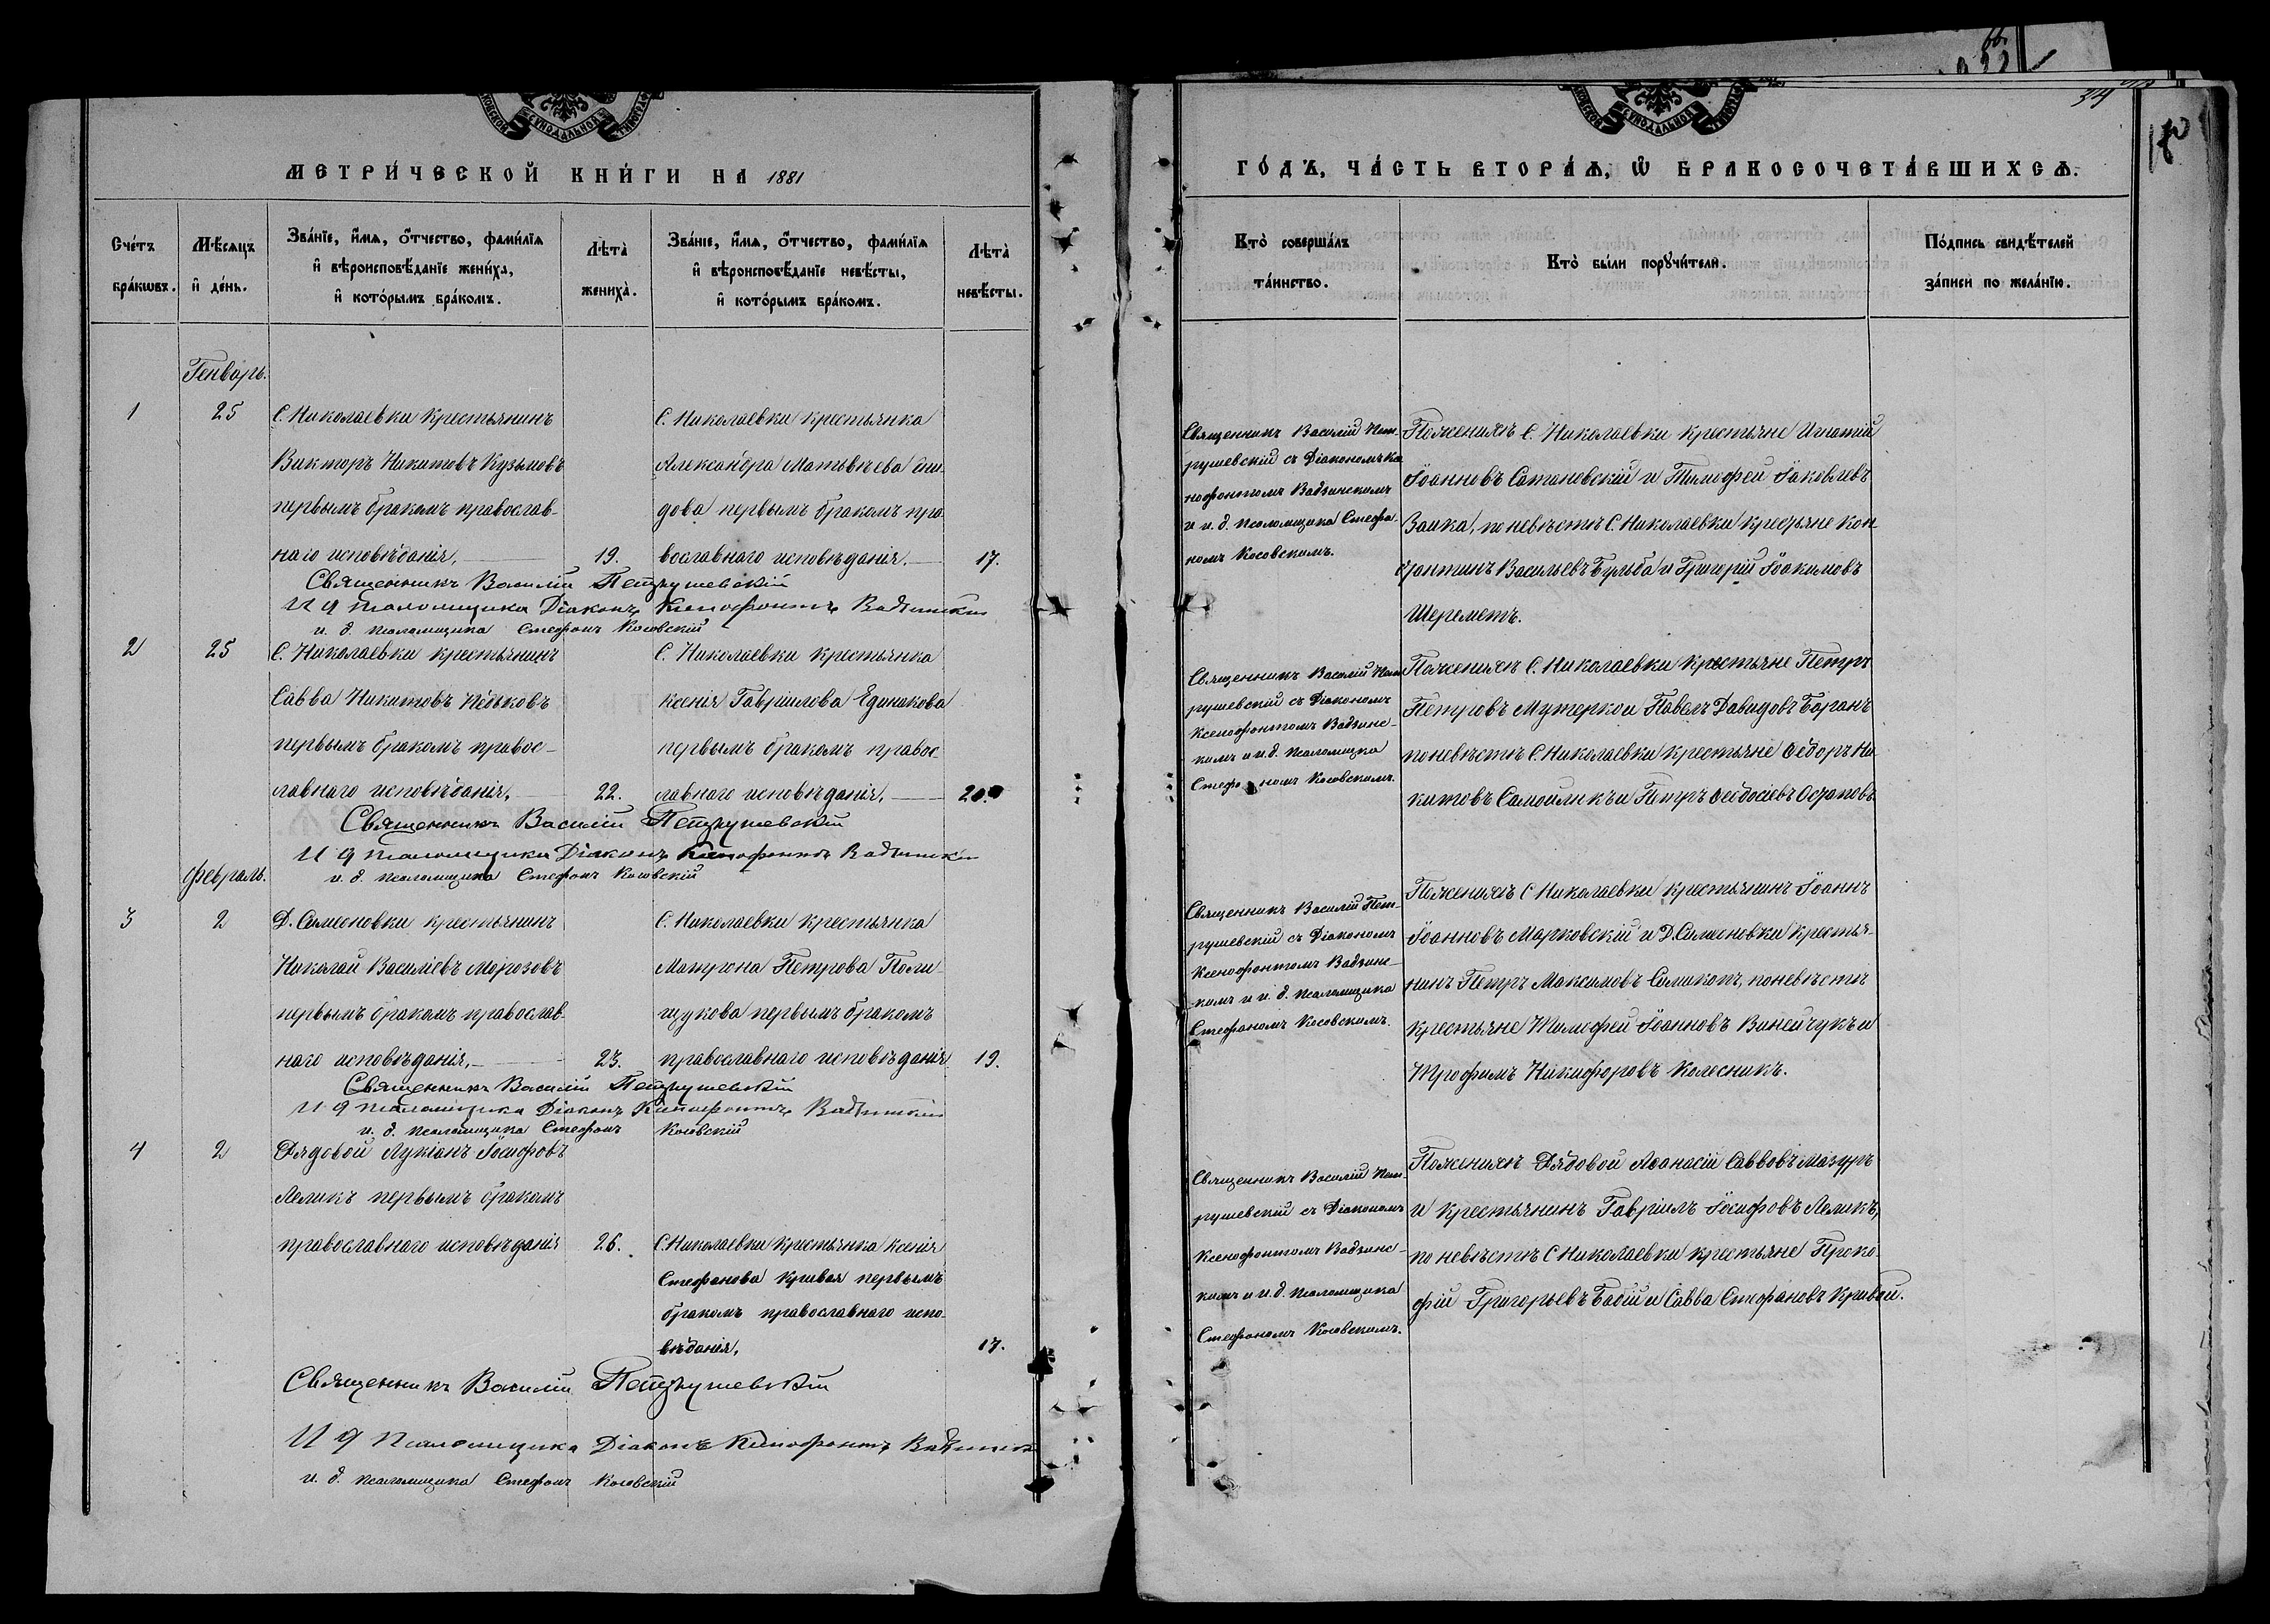 МЕТРИ́ЧЕСКОЙ КНИ́ГИ НА 1881
Сче́тъ бра́ковъ.
Мѣ́сяцъ и де́нь.
Зва́нїе, и́мя, о́тчество, фами́лїя
и вѣроисповѣ́данїе жениха̀,
и кото́рымъ бра́комъ.
Лѣта̀
жениха̀.
Зва́нїе, и́мя, о́тчество, фами́лїя
и вѣроисповѣ́данїе невѣ́сты,
и кото́рымъ бра́комъ.
Лѣта̀
невѣ́сты.
Генварь.
1 25 С. Николаевки крестьянинъ
Викторъ Никитовъ Кузьмовъ
первымъ бракомъ православ-
наго исповѣданія, 19.
С. Николаевки крестьянка
Александра Матьвѣева
дова первымъ бракомъ пра-
вославнаго исповѣданія. 17.
Священникъ Василій Петрушевскій
И д псаломщика Діаконъ Ксенофонтъ Вадзинскій
и. д. псаломщика Стефанъ Косовскій
2 25 С. Николаевки крестьянинъ
Савва Никитовъ Редьковъ
первымъ бракомъ правос-
лавнаго исповѣданія, 22.
С. Николаевки крестьянка
Ксенія Гавріилова Единакова
первымъ бракомъ правос-
лавнаго исповѣданія, 20.
Священникъ Василій Петрушевскій
И д псаломщика Діаконъ Ксенофонтъ Вадзинскій
и. д. псаломщика Стефанъ Косовскій
Февраль.
3 2 Д. Семеновки крестьянинъ
Николай Василіевъ Морозовъ
первымъ бракомъ православ-
наго исповѣданія, 23.
С. Николаевки крестьянка
Матрона Петрова Поли-
щукова первымъ бракомъ
православнаго исповѣданія 19.
Священникъ Василій Петрушевскій
И д псаломщика Діаконъ Ксенофонтъ Вадзинскій
и. д. псаломщика Стефанъ Косовскій
4 2 Рядовой Лукіанъ Іосифовъ
Лемикъ первымъ бракомъ
православнаго исповѣданія 26.
С. Николаевки крестьянка Ксенія
Стефанова Кривая первымъ
бракомъ православнаго испо-
вѣданія, 17.
Священникъ Василій Петрушевскій
И д Псаломщика Діаконъ Ксенофонтъ Вадзинскій
и. д. псаломщика Стефанъ Косовскій
34
ГО́ДЪ, ЧА́СТЬ ВТОРА́Я, Ѡ БРАКОСОЧЕТА́ВШИХСЯ.
Кто̀ соверша́лъ
та́инство.
Кто̀ бы́ли поручи́тели.
По́дпись свидѣ́телей
за́писи по жела́нїю.
Священникъ Василій Пет-
рушевскій съ Діакономъ Ксе
нофонтомъ Вадзинскимъ
и и. д. псаломщика Стефа-
номъ Косовскимъ.
По женихѣ С. Николаевки крестьяне Игнатій
Іоанновъ Сатановскій и Тимофей Іаковлевъ
Заика, по невѣстѣ С. Николаевки крестьяне Кон
стантинъ Васильевъ Бульба и Григорій Іоакимовъ
Шереметъ.
Священникъ Василій Пет
рушевскій съ Діакономъ
Ксенофонтомъ Вадзинс-
кимъ и и. д. псаломщика
Стефаномъ Косовскимъ.
По женихѣ С. Николаевки крестьяне Петръ
Петровъ Мутерко и Павелъ Давидовъ Баранъ
по невѣстѣ С. Николаевки крестьяне Ѳедоръ Ни
китовъ Самойликъ и Петръ Ѳеодосіевъ Остаповъ
Священникъ Василій Пет-
рушевскій съ Діакономъ
Ксенофонтомъ Вадзинс-
кимъ и и. д. псаломщика
Стефаномъ Косовскимъ.
По женихѣ С Николаевки крестьянинъ Іоаннъ
Іоанновъ Марковскій и Д. Семеновки крестья-
нинъ Петръ Максимовъ Семикоп, по невѣстѣ
крестьяне Тимофей Іоанновъ Винейчукъ и
Трофимъ Никифоровъ Колесникъ.
Священникъ Василій Пет-
рушевскій съ Діакономъ
Ксенофонтомъ Вадзинс-
кимъ и и. д. псаломщика
Стефаномъ Косовскимъ.
По женихѣ Рядовой Аѳанасій Саввовъ Мазуръ
и крестьянинъ Гавріилъ Іосифовъ Лемикъ,
по невѣстѣ С Николаевки крестьяне Проко-
фій Григорьевъ Бабій и Савва Стефановъ Кривой.